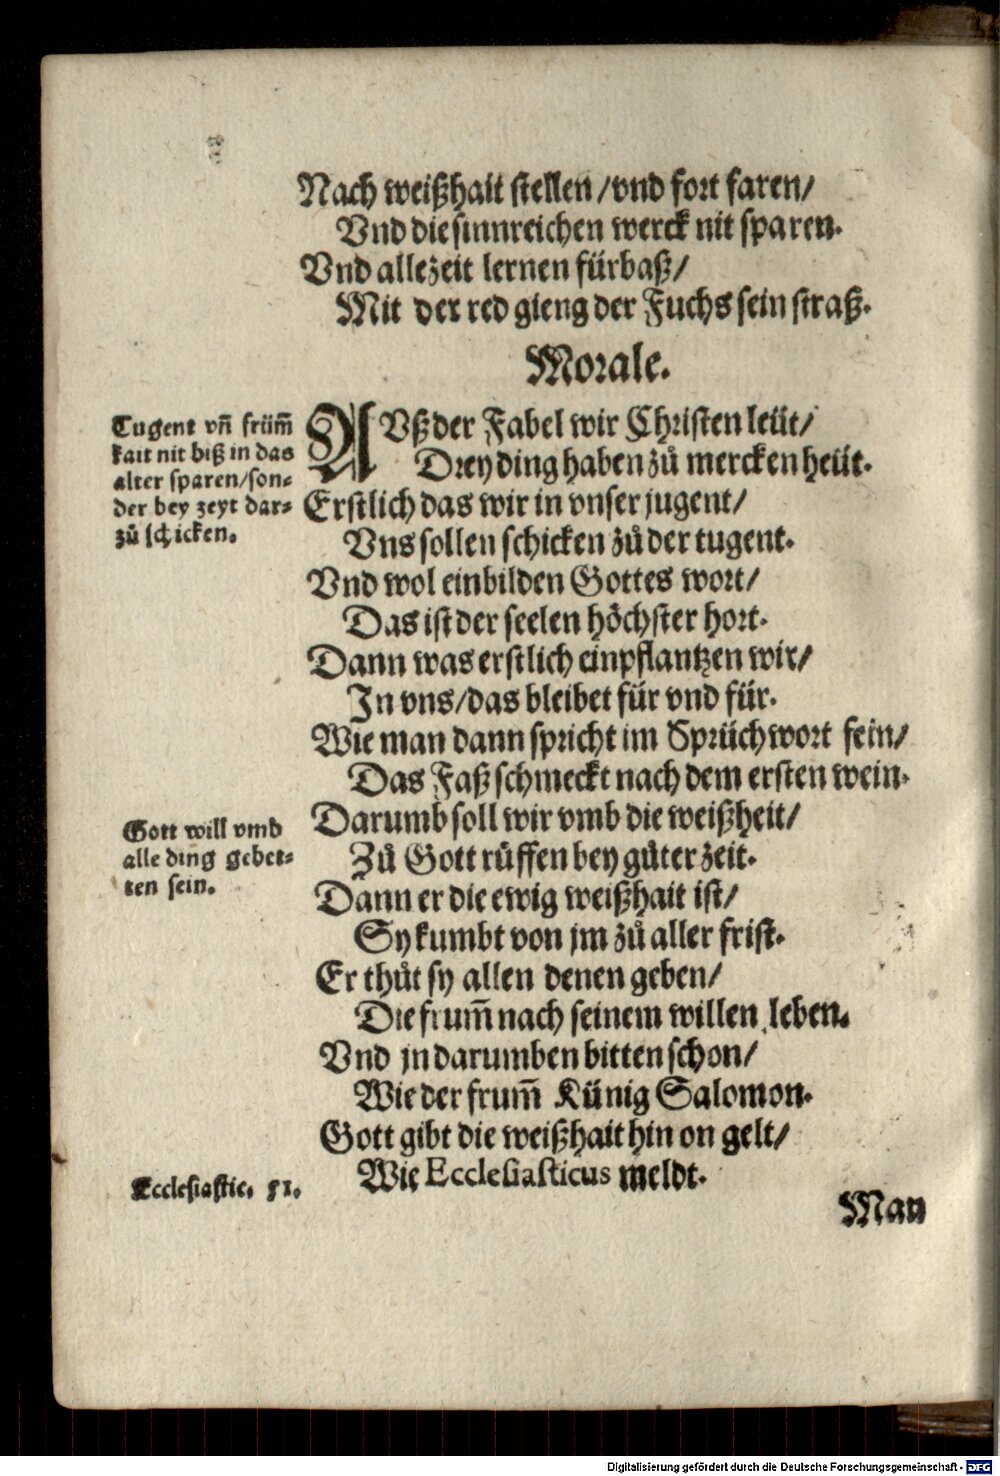 Nach weißhait stellen/vnd fort faren/
Vnd die sinnreichen werck nit sparen.
Vnd allezeit lernen fürbaß/
Mit der red gieng der Fuchs sein straß.
Morale.
Tugent vn̄ früm̄
kait nit biß in das
alter sparen/son-
der bey zeyt dar-
zů schicken.
AVß der Fabel wir Christen leüt/
Drey ding haben zů mercken heüt.
Erstlich das wir in vnser jugent/
Vns sollen schicken zů der tugent.
Vnd wol einbilden Gottes wort/
Das ist der seelen höchster hort.
Dann was erstlich einpflantzen wir/
In vns/das bleibet für vnd für.
Wie man dann spricht im Sprüchwort fein/
Das Faß schmeckt nach dem ersten wein.
Gott will vmb
alle ding gebet-
ten sein.
Darumb soll wir vmb die weißheit/
Zů Gott rüffen bey gůter zeit.
Dann er die ewig weißhait ist/
Sy kumbt von jm zů aller frist.
Er thůt sy allen denen geben/
Die frum̄ nach seinem willen leben.
Vnd jn darumben bitten schon/
Wie der frum̄ Künig Salomon.
Gott gibt die weißhait hin on gelt/
Wie Ecclesiasticus meldt.
Ecclesiastic. 51.
Man
Digitalisierung gefördert durch die Deutsche Forschungsgemeinschaft - DFG